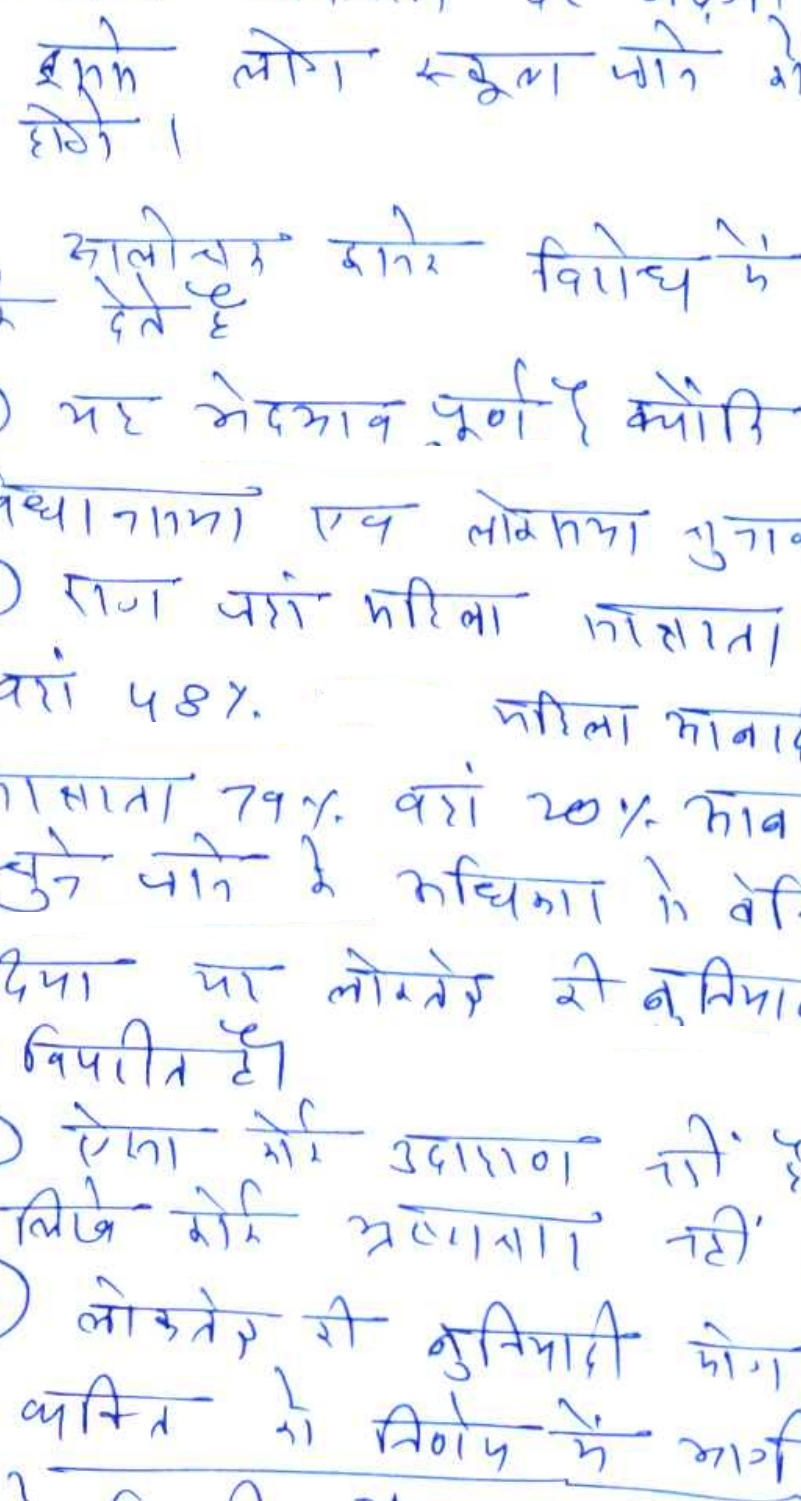 इससे लोग स्कूल जाने को
होगे ।
आलोचक इसके विरोध में
देते है
यह भेदभाव पूर्ण है क्योंकि
विधानसभा एवं लोकसभा चुनाव
राज. जहां महिला साक्षरता
वहां 48%. महिला आबादी
साक्षरता 79%. वहां 20%. आब
चुने जाने के अधिकार से वंचि
दिया यह लोकतंत्र की बुनिया
विपरीत है।
ऐसा कोई उदाहरण नहीं है
लिखे कोई भ्रष्टाचार नहीं
लोकतंत्र की बुनियादी मांग
व्यक्ति को निर्णय में भागी